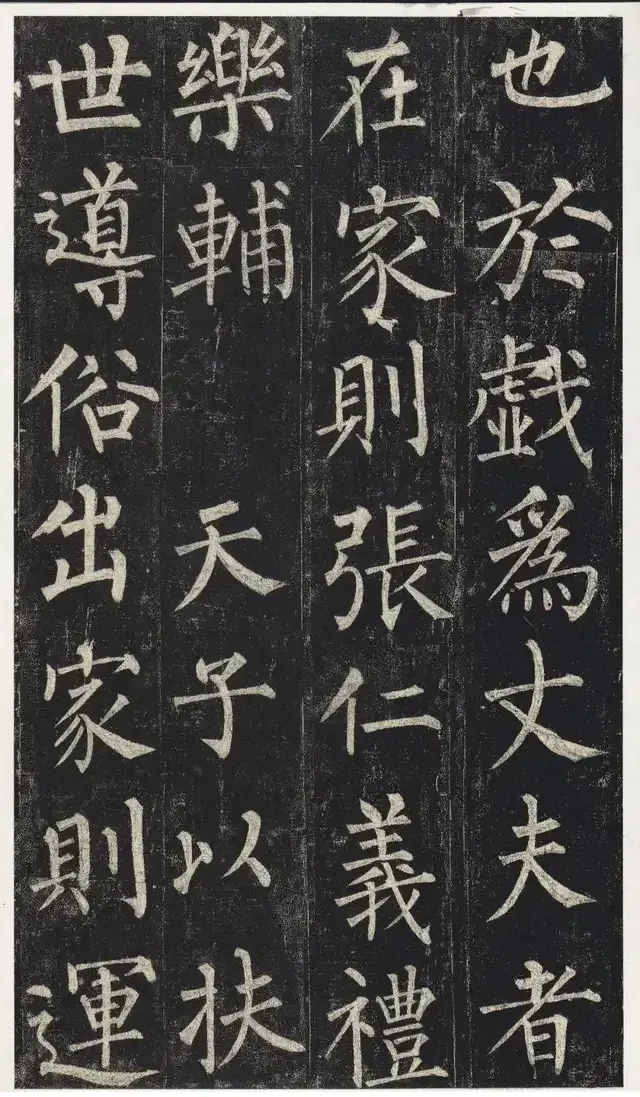 也於戱為丈夫者
在家則張仁義禮
樂輔 天子以扶
世導俗出家則運